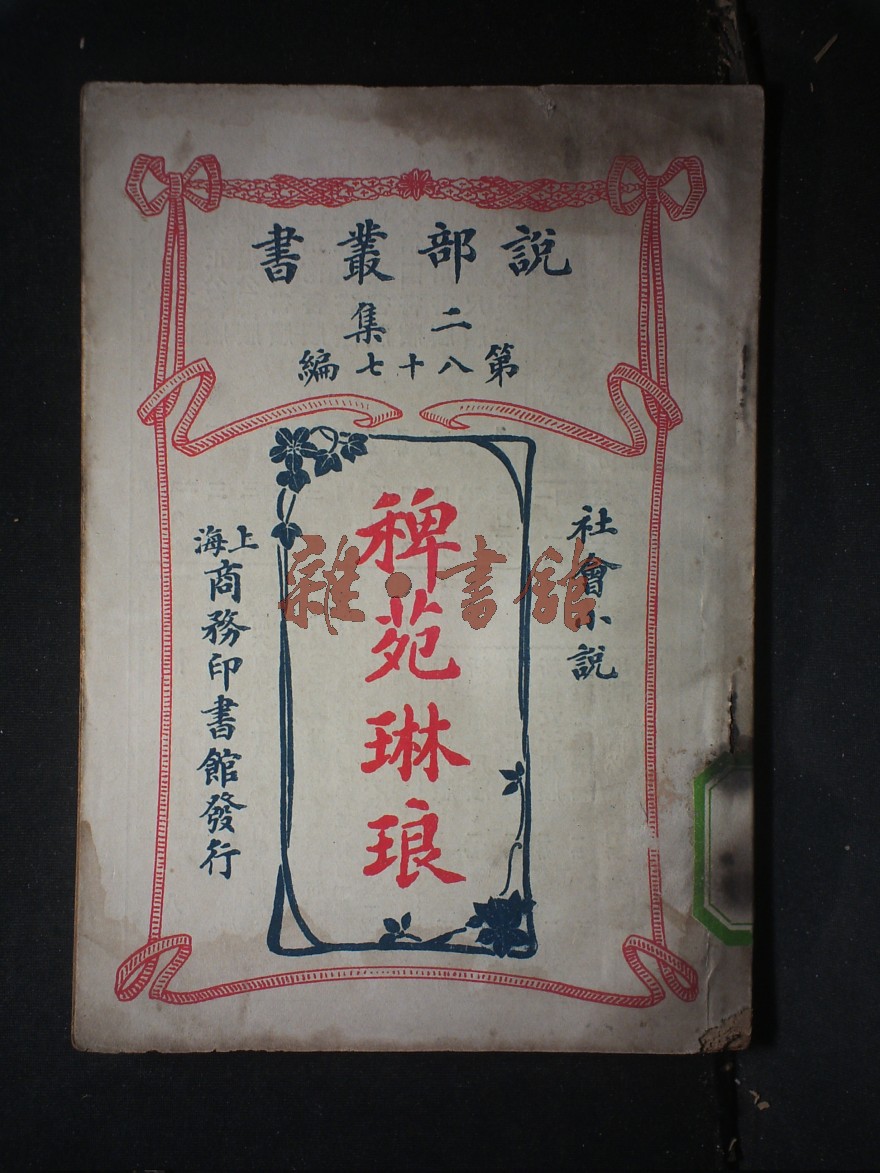 說部叢書
二集
第八十七編
社會小說
稗苑琳琅
上海
商務印書館發行
雜·書館